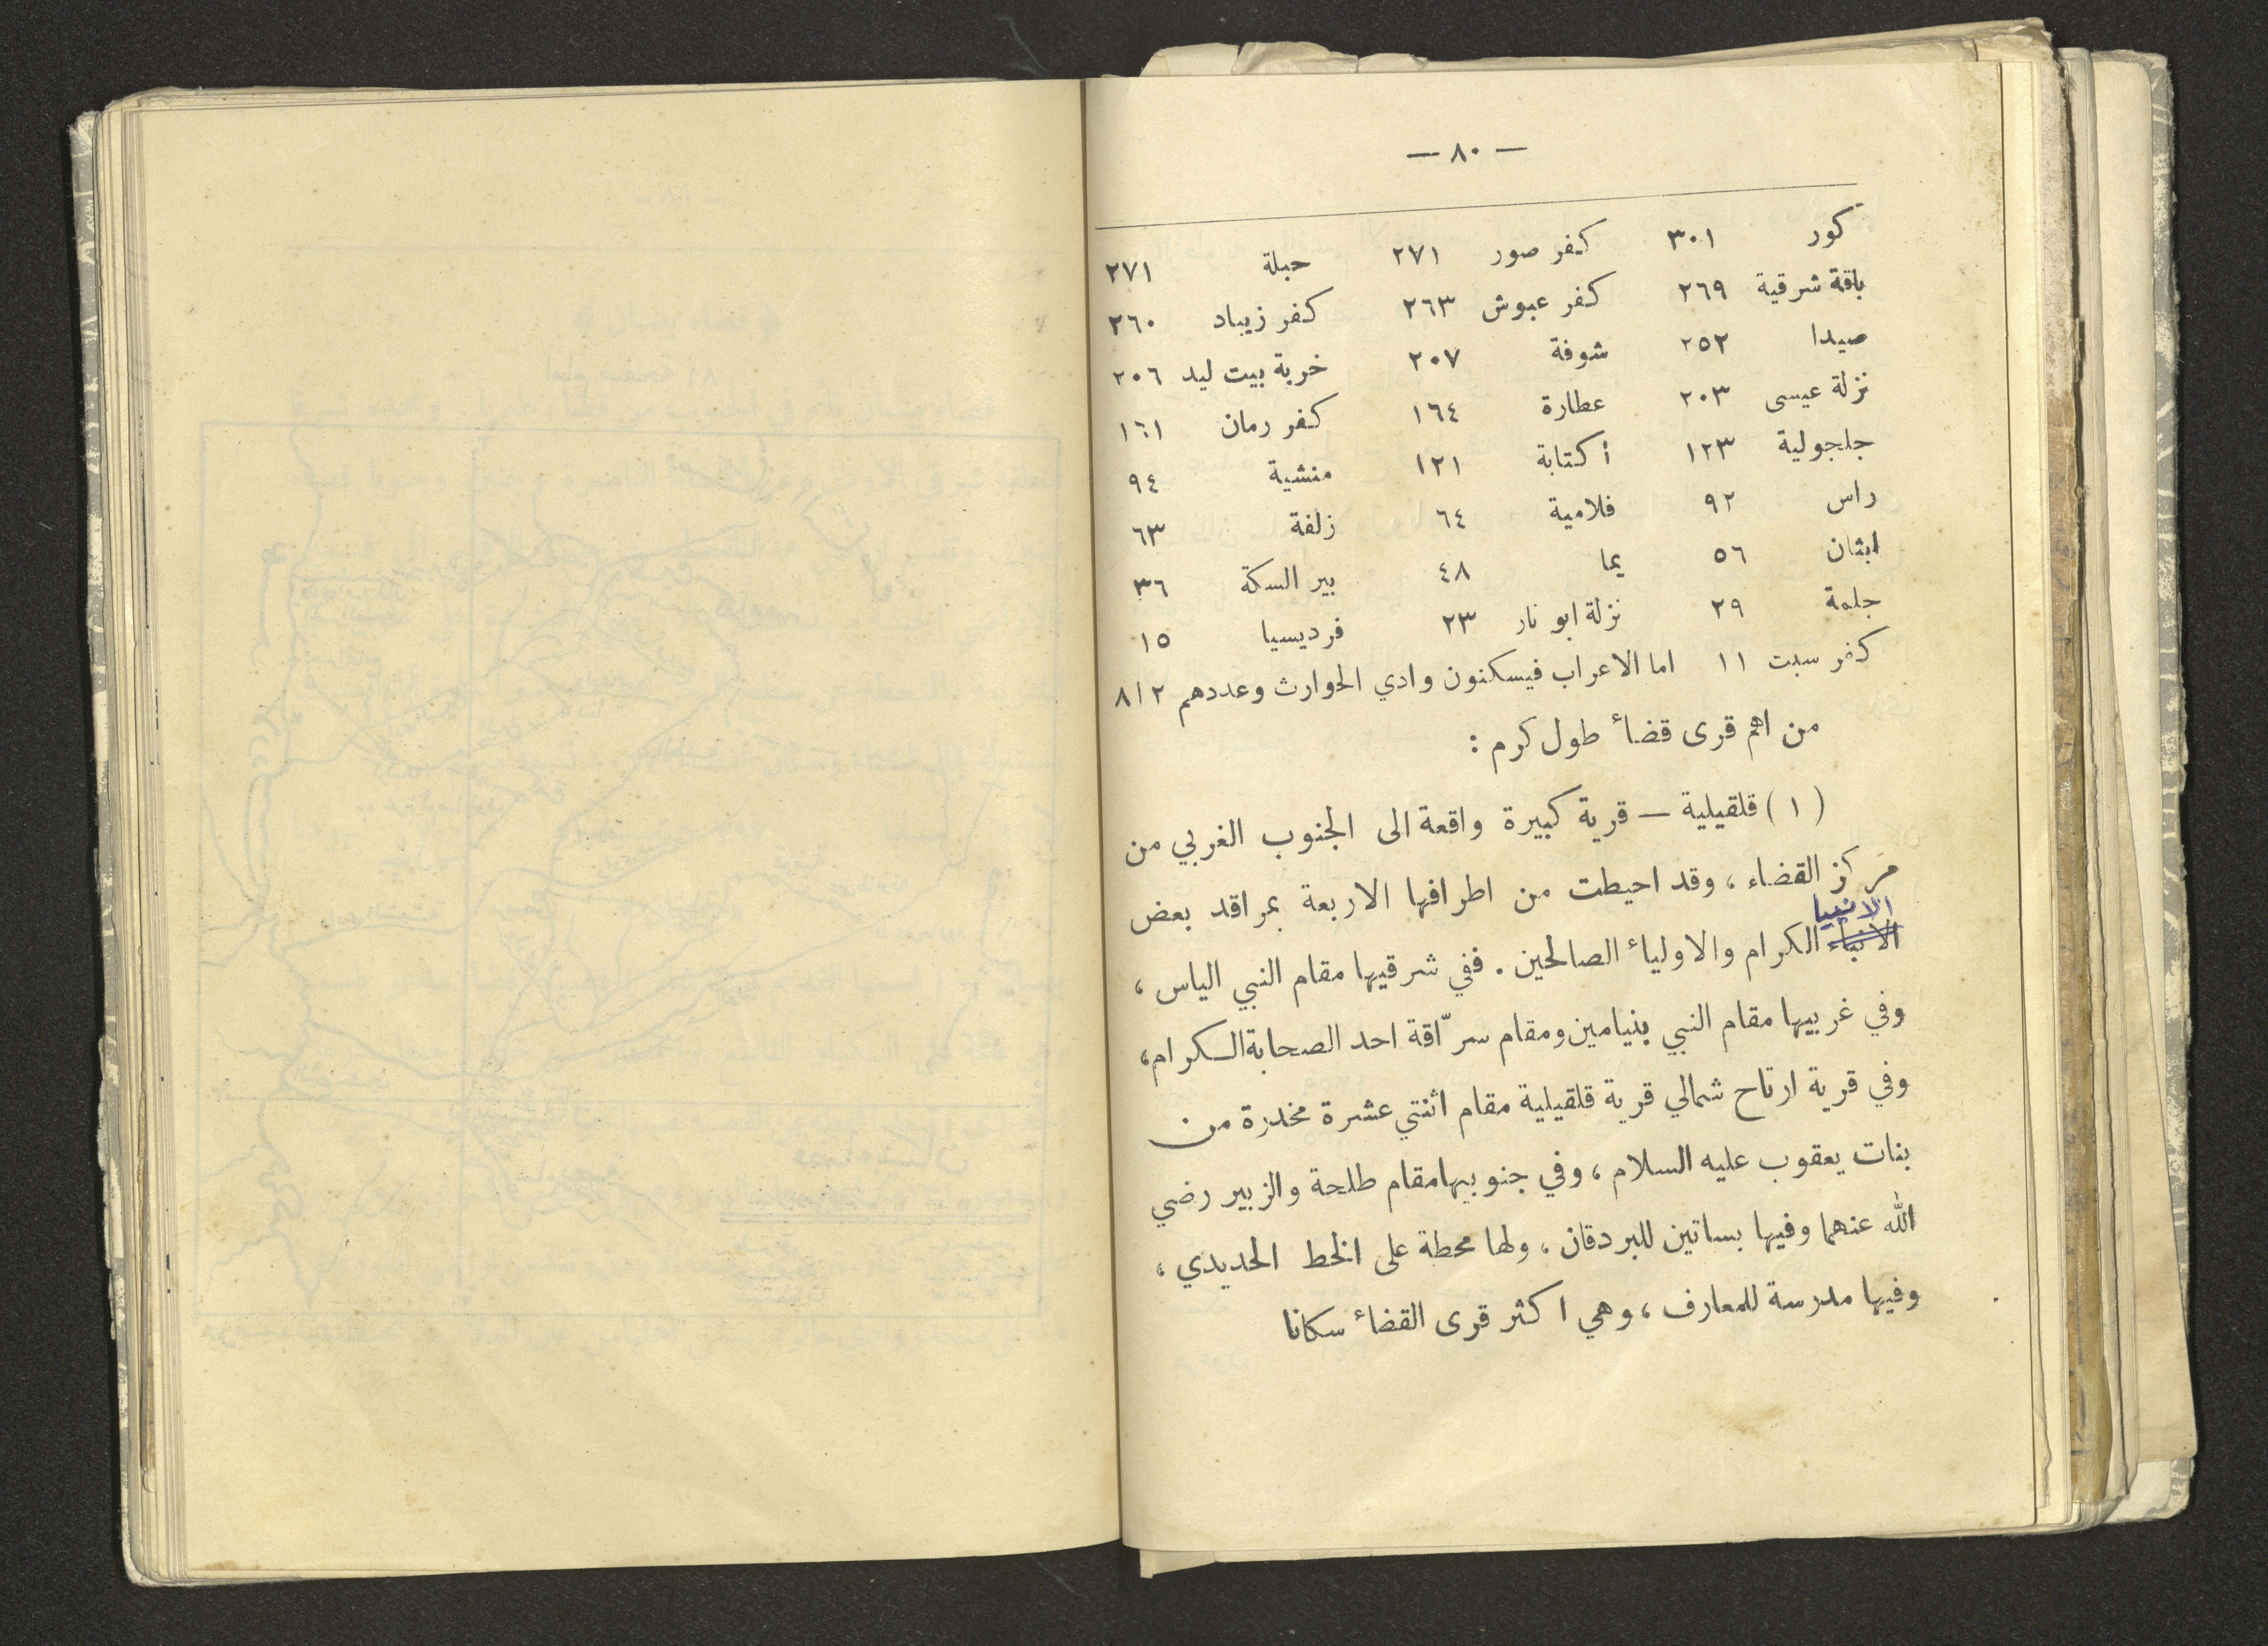 — ٨٠ —
كور ٣٠١ كفر صور ٢٧١ حبلة ٢٧١
باقة شرقية ٢٦٩ كفر عبوش ٢٦٣ كفر زيباد ٢٦٠
صيدا ٢٥٢ شوفة ٢٠٧ خربة بيت ليد ٢٠٦
نزلة عيسى ٢٠٣ عطارة ١٦٤ كفر رمان ١٦١
جلجولية ١٢٣ أكتابة ١٢١ منشية ٩٤
راس ٩٢ فلامية ٦٤ زلفة ٦٣
ابثان ٥٦ يما ٤٨ بير السكة ٣٦
جلمة ٢٩ نزلة ابو نار ٢٣ فرديسيا ١٥
كفر سبت ١١ اما الاعراب فيسكنون وادي الحوارث وعددهم ٨١٢
من اهم قرى قضاء طول كرم :
(١) قلقيلية — قرية كبيرة واقعة الى الجنوب الغربي من
مركز القضاء ، وقد احيطت من اطرافها الاربعة بمراقد بعض
الانبيا
الانباء الكرام والاولياء الصالحين . ففي شرقيها مقام النبي الياس ،
وفي غربيها مقام النبي بنيامين ومقام سرّاقة احد الصحابة الكرام ،
وفي قرية ارتاح شمالي قرية قلقيلية مقام اثنتي عشرة مخدرة من
بنات يعقوب عليه السلام ، وفي جنوبيها مقام طلحة والزبير رضي
الله عنهما وفيها بساتين للبردقان ، ولها محطة على الخط الحديدي ،
وفيها مدرسة للمعارف ، وهي اكثر قرى القضاء سكانا